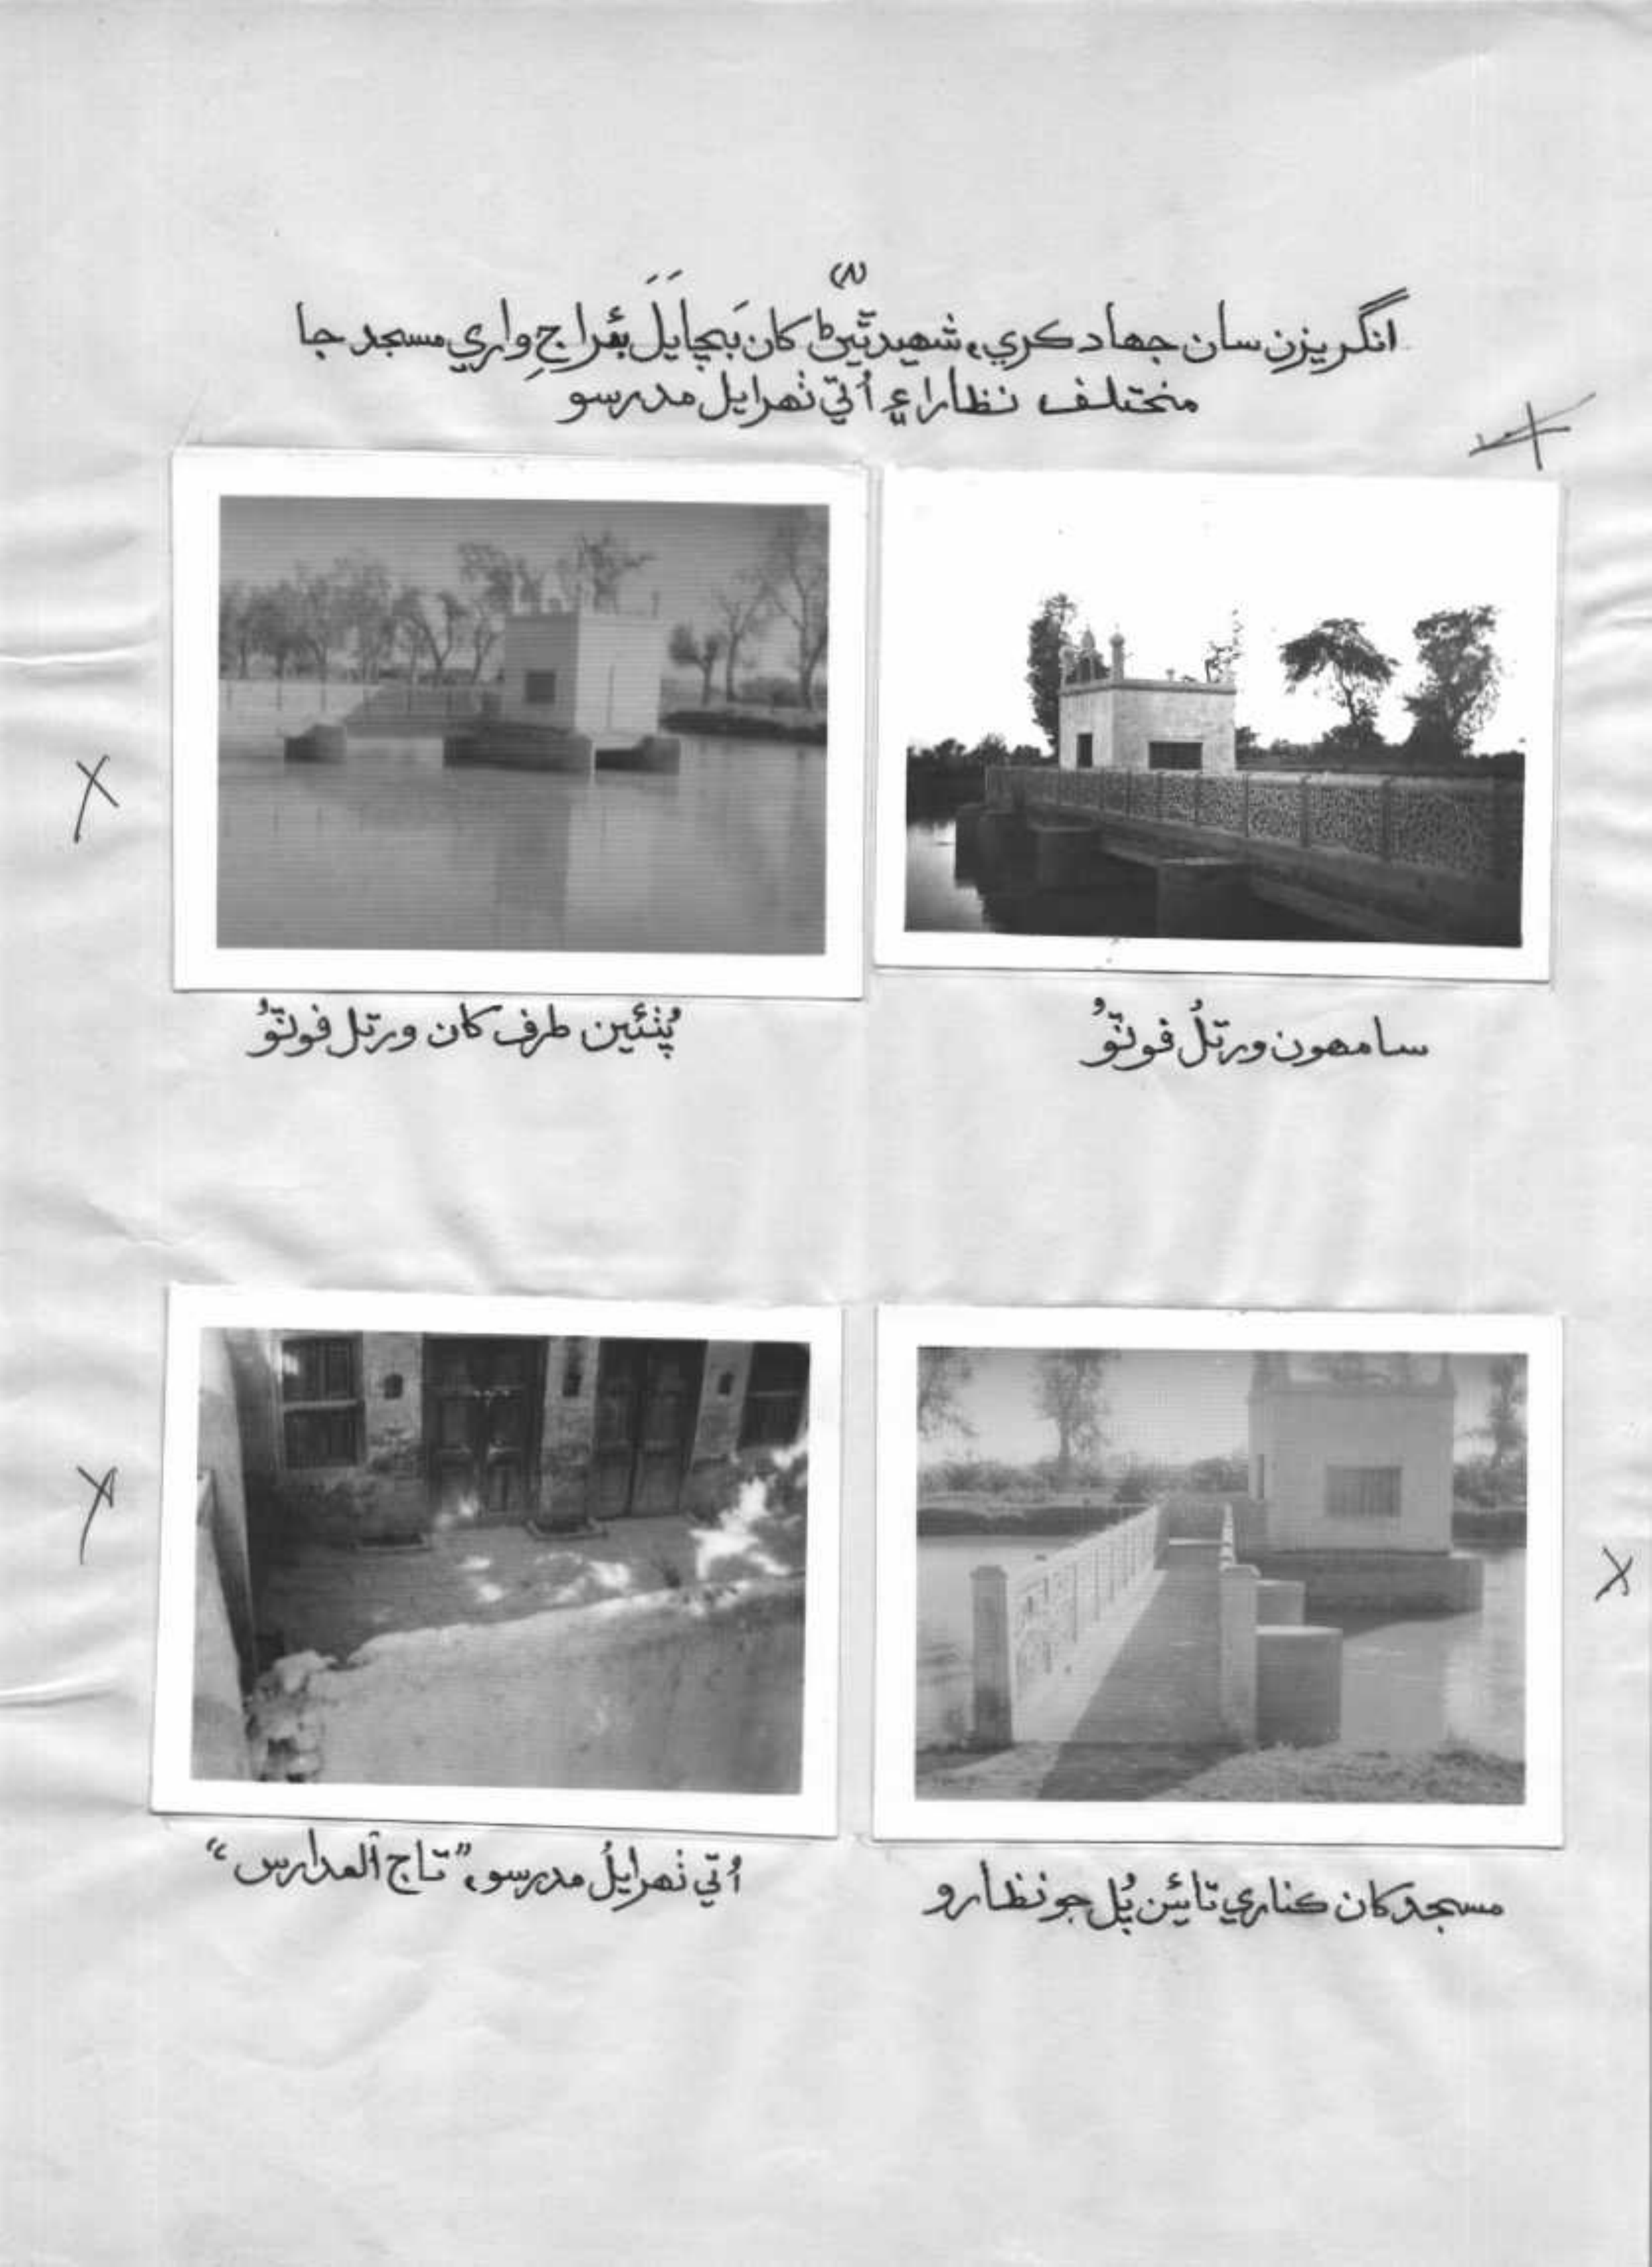 (٨)
انگريزن سان جهاد ڪري، شهيد ٿيڻ کان بَچايَلَ بئراجِ واري مسجد جا
مختلف نظارا ۽ اُتي ٺهرايل مدرسو
سامهون ورتلُ فوٽوُ
پُٺئين طرف کان ورتل فوٽوُ
مسجد کان ڪناري تائين پُل جو نظارو
اُتي ٺهرايلُ مدرسو، ”تاج المدارس“